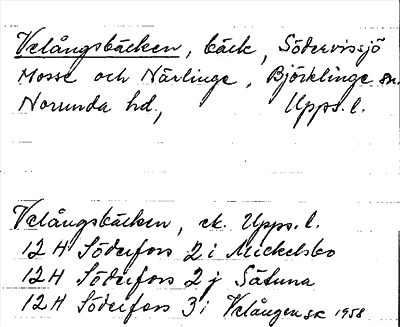 Velångsbäcken, bäck, Södervissjö
Mosse och Närlinge, Björklinge sn.
Norunda hd., Upps. l.
Velångsbäcken, ek. Upps. l.
12 H Söderfors 2 i Mickelsbo
12 H Söderfors 2 j Sätuna
12 H Söderfors 3 i Velången SK 1958